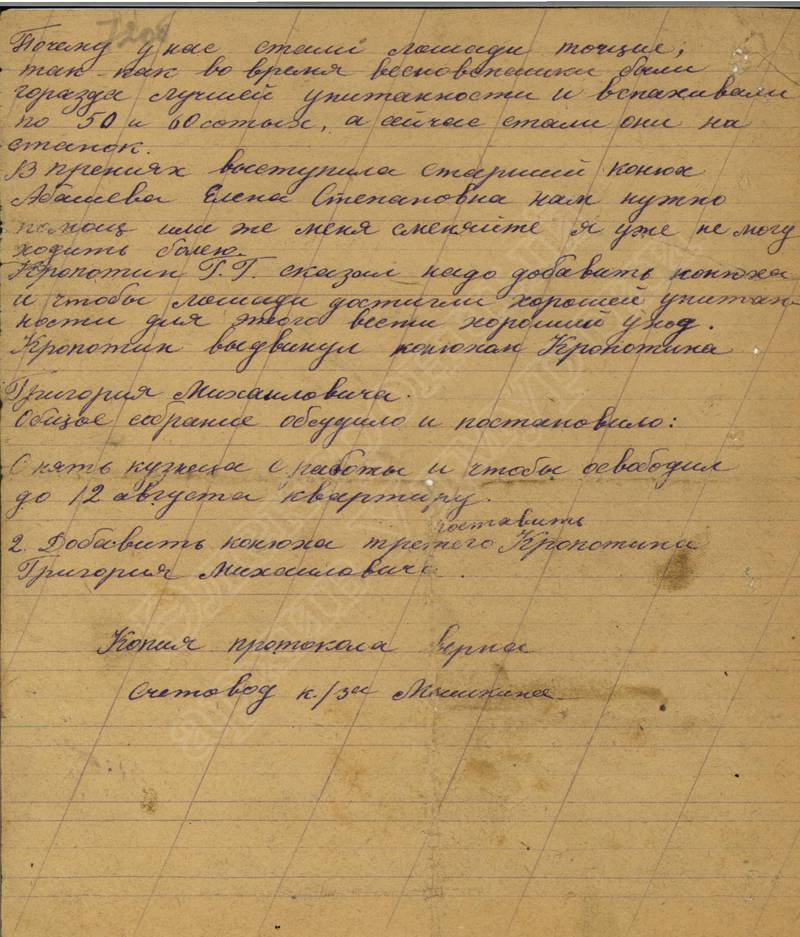 Почему у нас стали лошади тощие,
так как во время весновспашки были
горазда лучшей упитанности и вспахивали
по 50 и 60 сотых, а сичас стали они на
станок.
В прениях выступила старший конюх
Абашева Елена Степановна нам нужно
помощ или же меня сменяйте я уже не могу
ходить более.
Кропотин Г.Г. сказал надо добавить конюха
и чтобы лошади достигли хорошей упитан-
ности для этого вести хороший уход.
Кропотин выдвинул конюхом Кропотина
Григория Михаиловича.
Общое собрание обсудило и постановило:
Снять кузнеца с работы и чтобы освободил
до 12 августа квартиру.
поставить
2. Добавить конюха третего Кропотина
Григория Михаиловича.
Копия протокола верна
Счетовод к/за Мышкина